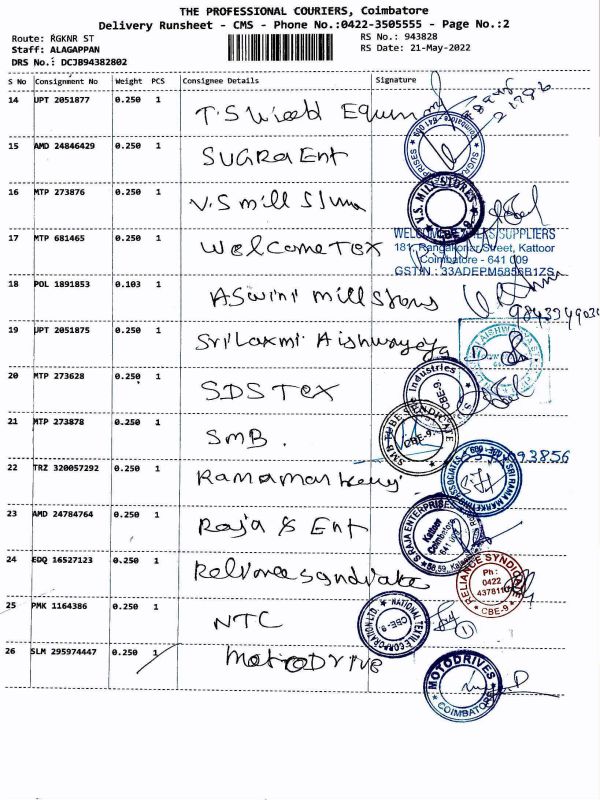 THE PROFESSIONAL COURIERS, Coimbatore
Delivery Runsheet - CMS - Phone No.:0422-3505555 - Page No.:2
Route: RGKNR ST
RS No.: 943828
Staff: ALAGAPPAN
RS Date: 21-May-2022
DRS No.: DCJB94382802
S No Consignment No Weight PCS Consignee Details Signature
14 UPT 2051877 0.250 1 T.S
15 AMD 24846429 0.250 1 SUGRA Ent
16 MTP 273876 0.250 1 V.S mill
V.S. MILL STORES
17 MTP 681465 0.250 1 Welcome Tex
181, Rangakonar Street, Kattoor
Coimbatore - 641 009
GSTIN : 33ADEPM5856B1ZS
18 POL 1891853 0.103 1 ASwini mill Stores
19 UPT 2051875 0.250 1 Sri Laxmi
20 MTP 273628 0.250 1 SDS Tex
Industries
CBE-9
21 MTP 273878 0.250 1 SMB .
SMB TUBE SYNDICATE
CBE-9.
22 TRZ 320057292 0.250 1
SRI RAMA MARKETING ASSOCIATES
23 AMD 24784764 0.250 1 Raja & Ent
S.RAJA ENTERPRISES
Kattoor
Coimbatore
24 EDQ 16527123 0.250 1 Reliance Syndicate
RELIANCE SYNDICATE
Ph :
0422
CBE-9
25 PMK 1164386 0.250 1 NTC
NATIONAL TEXTILE CORPORATION LTD.
CBE-9
26 SLM 295974447 0.250 1 MotoDrive
MOTODRIVES
COIMBATORE